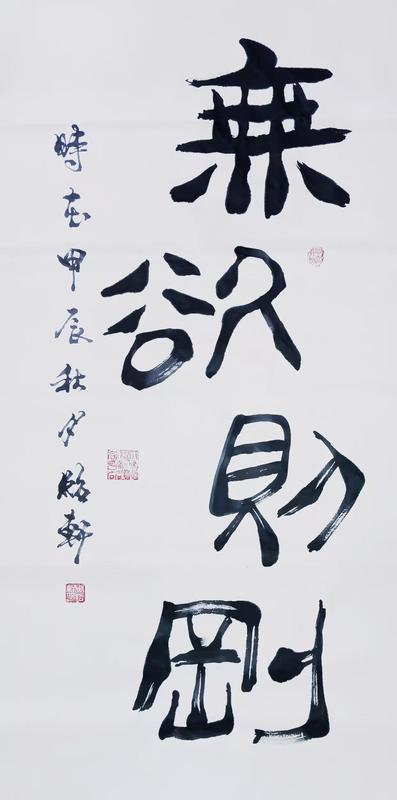 無欲則剛
時在甲辰秋月